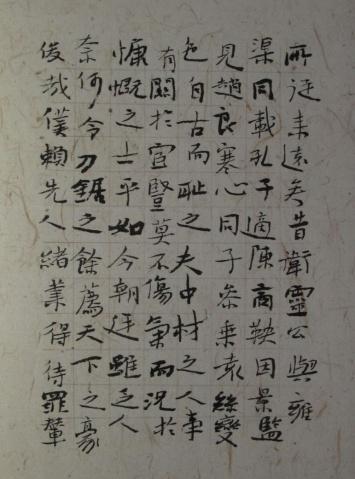 所從来遠矣昔衛靈公與雍
渠同載孔子適陳商鞅因景監
見趙良寒心同子參乘袁絲變
色自古而耻之夫中材之人事
有關於宦豎莫不傷氣而況於
慷慨之士乎如今朝廷雖乏人
奈何令刀鋸之餘薦天下之豪
俊哉僕賴先人緒業得待罪輦